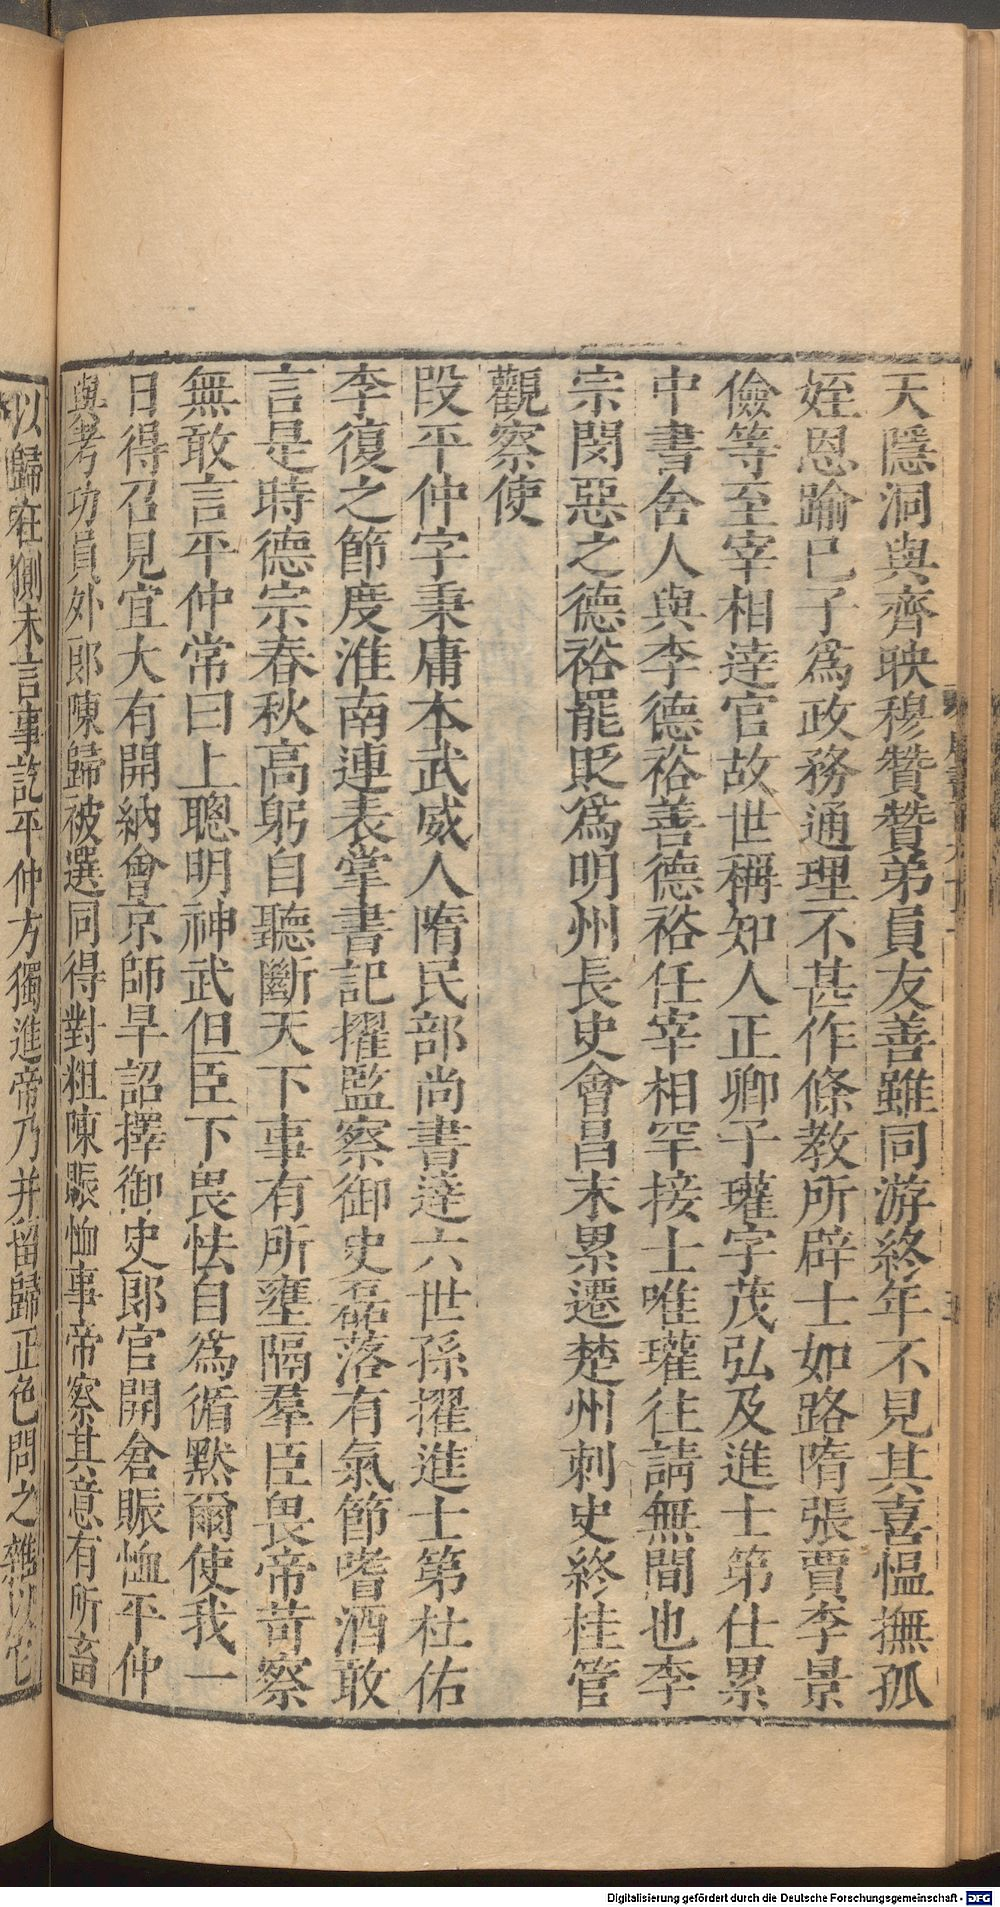 天隱洞與齊映穆贊贊弟員友善雖同游終年不見其喜慍撫孤
姪恩踰已子爲政務通理不甚作條教所辟士如路隋張賈李景
儉等至宰相達官故世稱知人正卿子瓘字茂弘及進士第仕累
中書舍人與李德裕善德裕任宰相罕接士唯瓘往請無間也李
宗閔惡之德裕罷貶爲明州長史會昌末累遷楚州刺史終桂管
觀察使
段平仲字秉庸本武威人隋民部尚書達六世孫擢進士第杜佑
李復之節度淮南連表掌書記擢監察御史磊落有氣節嗜酒敢
言是時德宗春秋高躬自聽斷天下事有所壅隔羣臣畏帝苛察
無敢言平仲常曰上聰明神武但臣下畏怯自爲循默爾使我一
日得召見宜大有開納會京師旱詔擇御史郎官開倉賑恤平仲
與考功員外郎陳歸被選同得對粗陳賑恤事帝察其意有所畜
以歸在側未言事訖平仲方獨進帝乃并留歸正色問之雜以它
Digitalisierung gefördert durch die Deutsche Forschungsgemeinschaft - DFG